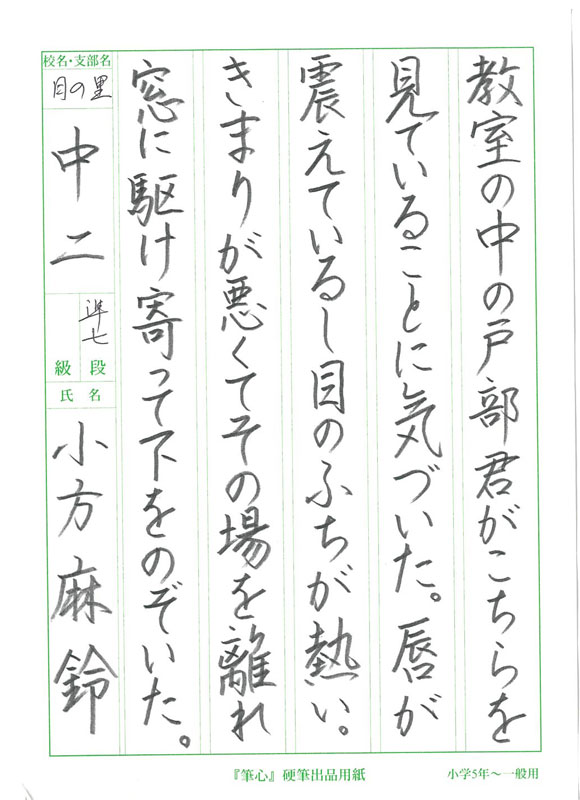 教室の中の戸部君がこちらを
見ていることに気づいた。唇が
震えているし目のふちが熱い。
きまりが悪くてその場を離れ
窓に駆け寄って下をのぞいた。
校名・支部名
日の里
中二
準七
段
級
氏名
小方麻鈴
『筆心』硬筆出品用紙
小学5年〜一般用